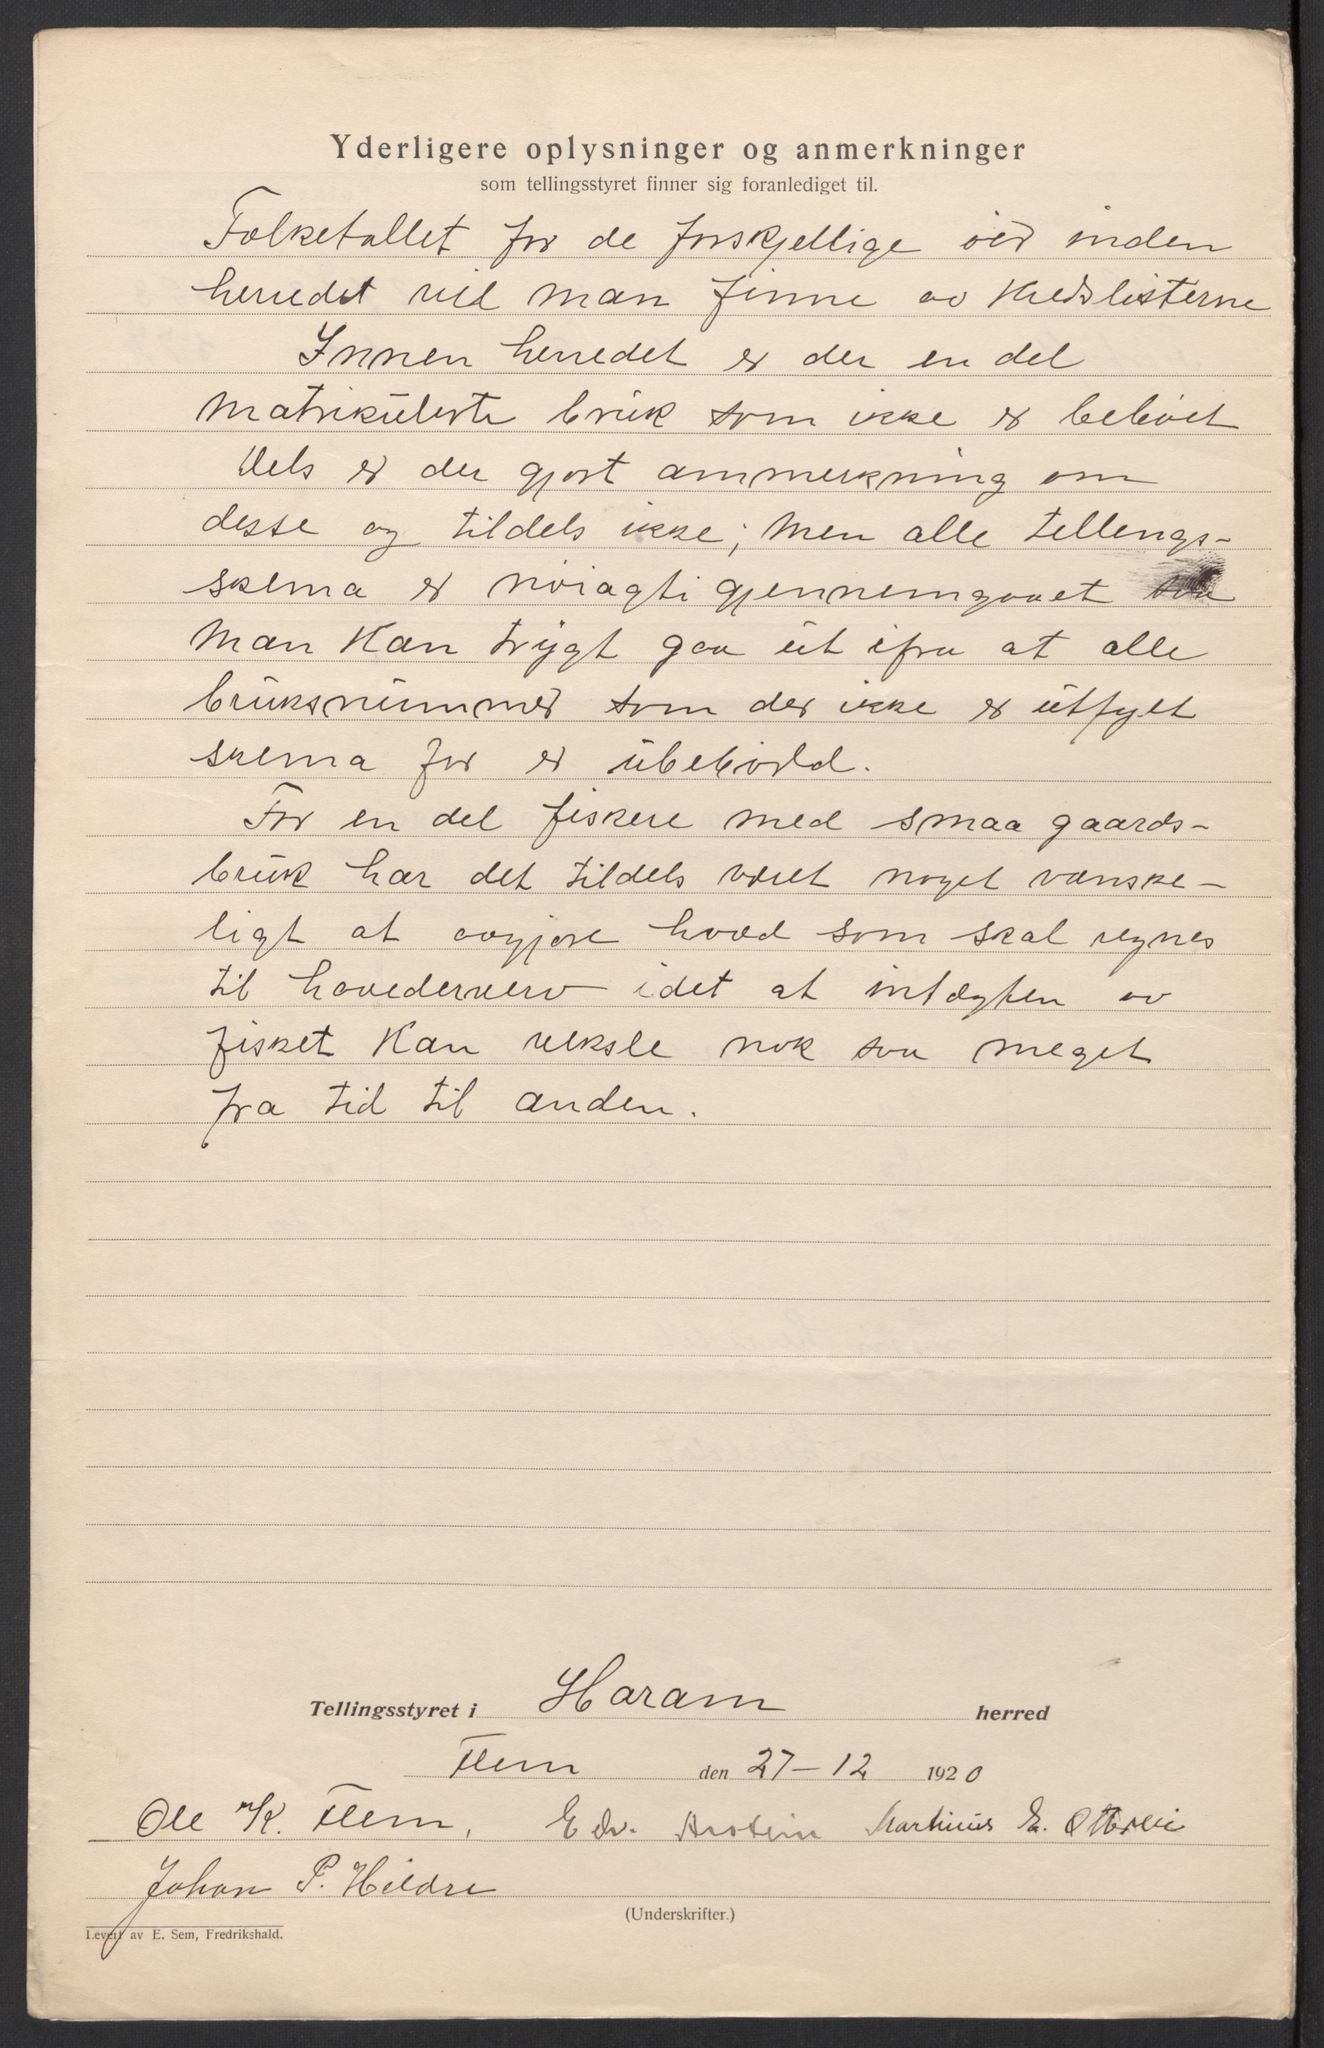 Yderligere oplysninger og anmerkninger
som tellingsstyret finner sig foranlediget til.
Folketallet for de forskjellige øer inden
herredet vil man finne av Kredslisterne
Innen herredet er der en del
matrikulerte bruk som ikke er beboet
Dels er der gjort anmerkning om
desse og tildels ikke; men alle tellings-
skema er nøiagti gjennemgaaet saa
man kan trygt gaa ut ifra at alle
bruksnummer som der ikke er utfylt
skema for er ubebodd.
For en del fiskere med smaa gaards-
bruk har det tildels været noget vanske-
ligt at avgjøre hvad som skal regnes
til hovederverv idet at intægten av
fisket kan veksle nok saa meget
fra tid til anden.
Tellingsstyret i Haram herred
Flem den 27-12 1920
Ole K. Flem, Edv. Austein Martinus E. Otterlei
Johan P. Hildre
(Underskrifter.)
Levert av E. Sem, Fredrikshald.